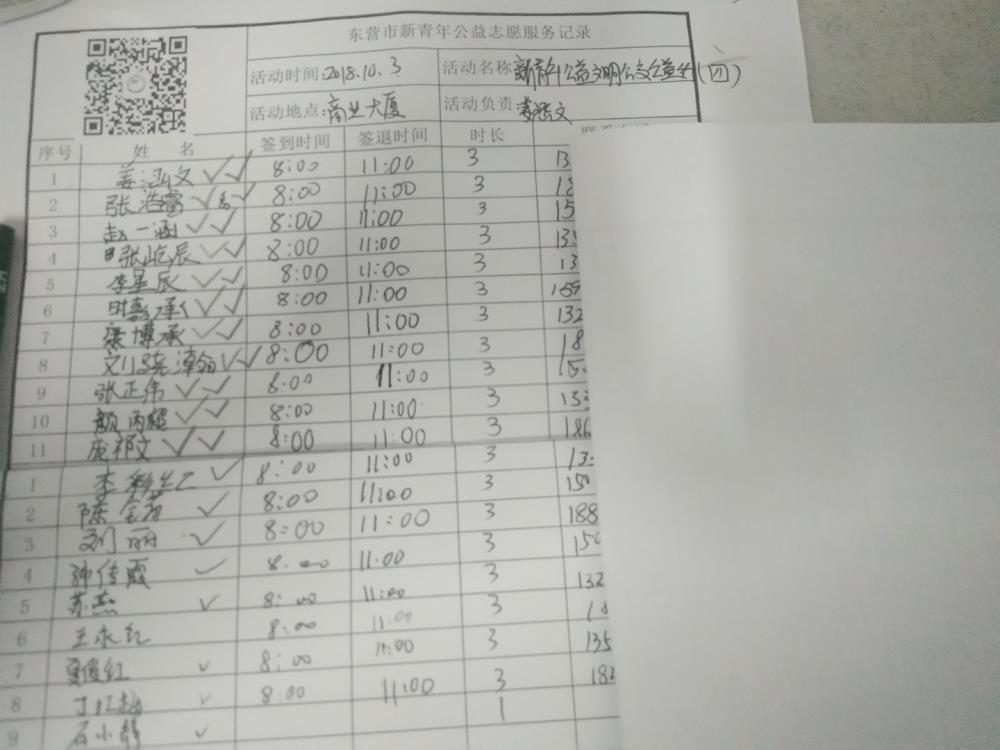 东营市新青年公益志愿服务记录
活动时间:2018.10.3 活动名称:新青年公益文明公交公益行(四)
活动地点:商业大厦 活动负责:姜涵文
序号 姓 名 签到时间 签退时间 时长
1 姜涵文 8:00 11:00 3 13
2 张浩富 8:00 11:00 3 18
3 赵一涵 8:00 11:00 3 15
4 张屹辰 8:00 11:00 3 13
5 李星辰 8:00 11:00 3 13
6 时嘉承 8:00 11:00 3 159
7 康博承 8:00 11:00 3 132
8 8:00 11:00 3 18
9 张正伟 8:00 11:00 3 15
10 颜丙超 8:00 11:00 3 15
11 庞祁文 8:00 11:00 3 186
1 李 8:00 11:00 3 13
2 陈 8:00 11:00 3 150
3 刘丽 8:00 11:00 3 188
4 钟传霞 8:00 11:00 3 150
5 苏燕 8:00 11:00 3 132
6 王永红 8:00 11:00 3 18
7 红 8:00 11:00 3 135
8 丁红梅 8:00 11:00 3 182
9 石小静 1